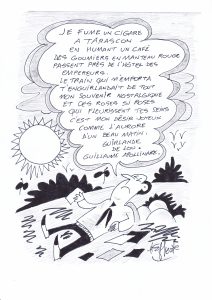 JE FUME UN CIGARE
A TARASCON
EN HUMANT UN CAFÉ
DES GOUMIERS EN MANTEAU ROUGE
PASSENT PRÈS DE L'HOTEL DES
EMPEREURS.
LE TRAIN QUI M'EMPORTA
T'ENGUIRLANDAIT DE TOUT
MON SOUVENIR NOSTALGIQUE
ET CES ROSES SI ROSES
QUI FLEURISSENT TES SEINS
C'EST MON DÉSIR JOYEUX
COMME L'AURORE
D'UN BEAU MATIN.
GUIRLANDE
DE LOU.
GUILLAUME APOLLINAIRE.